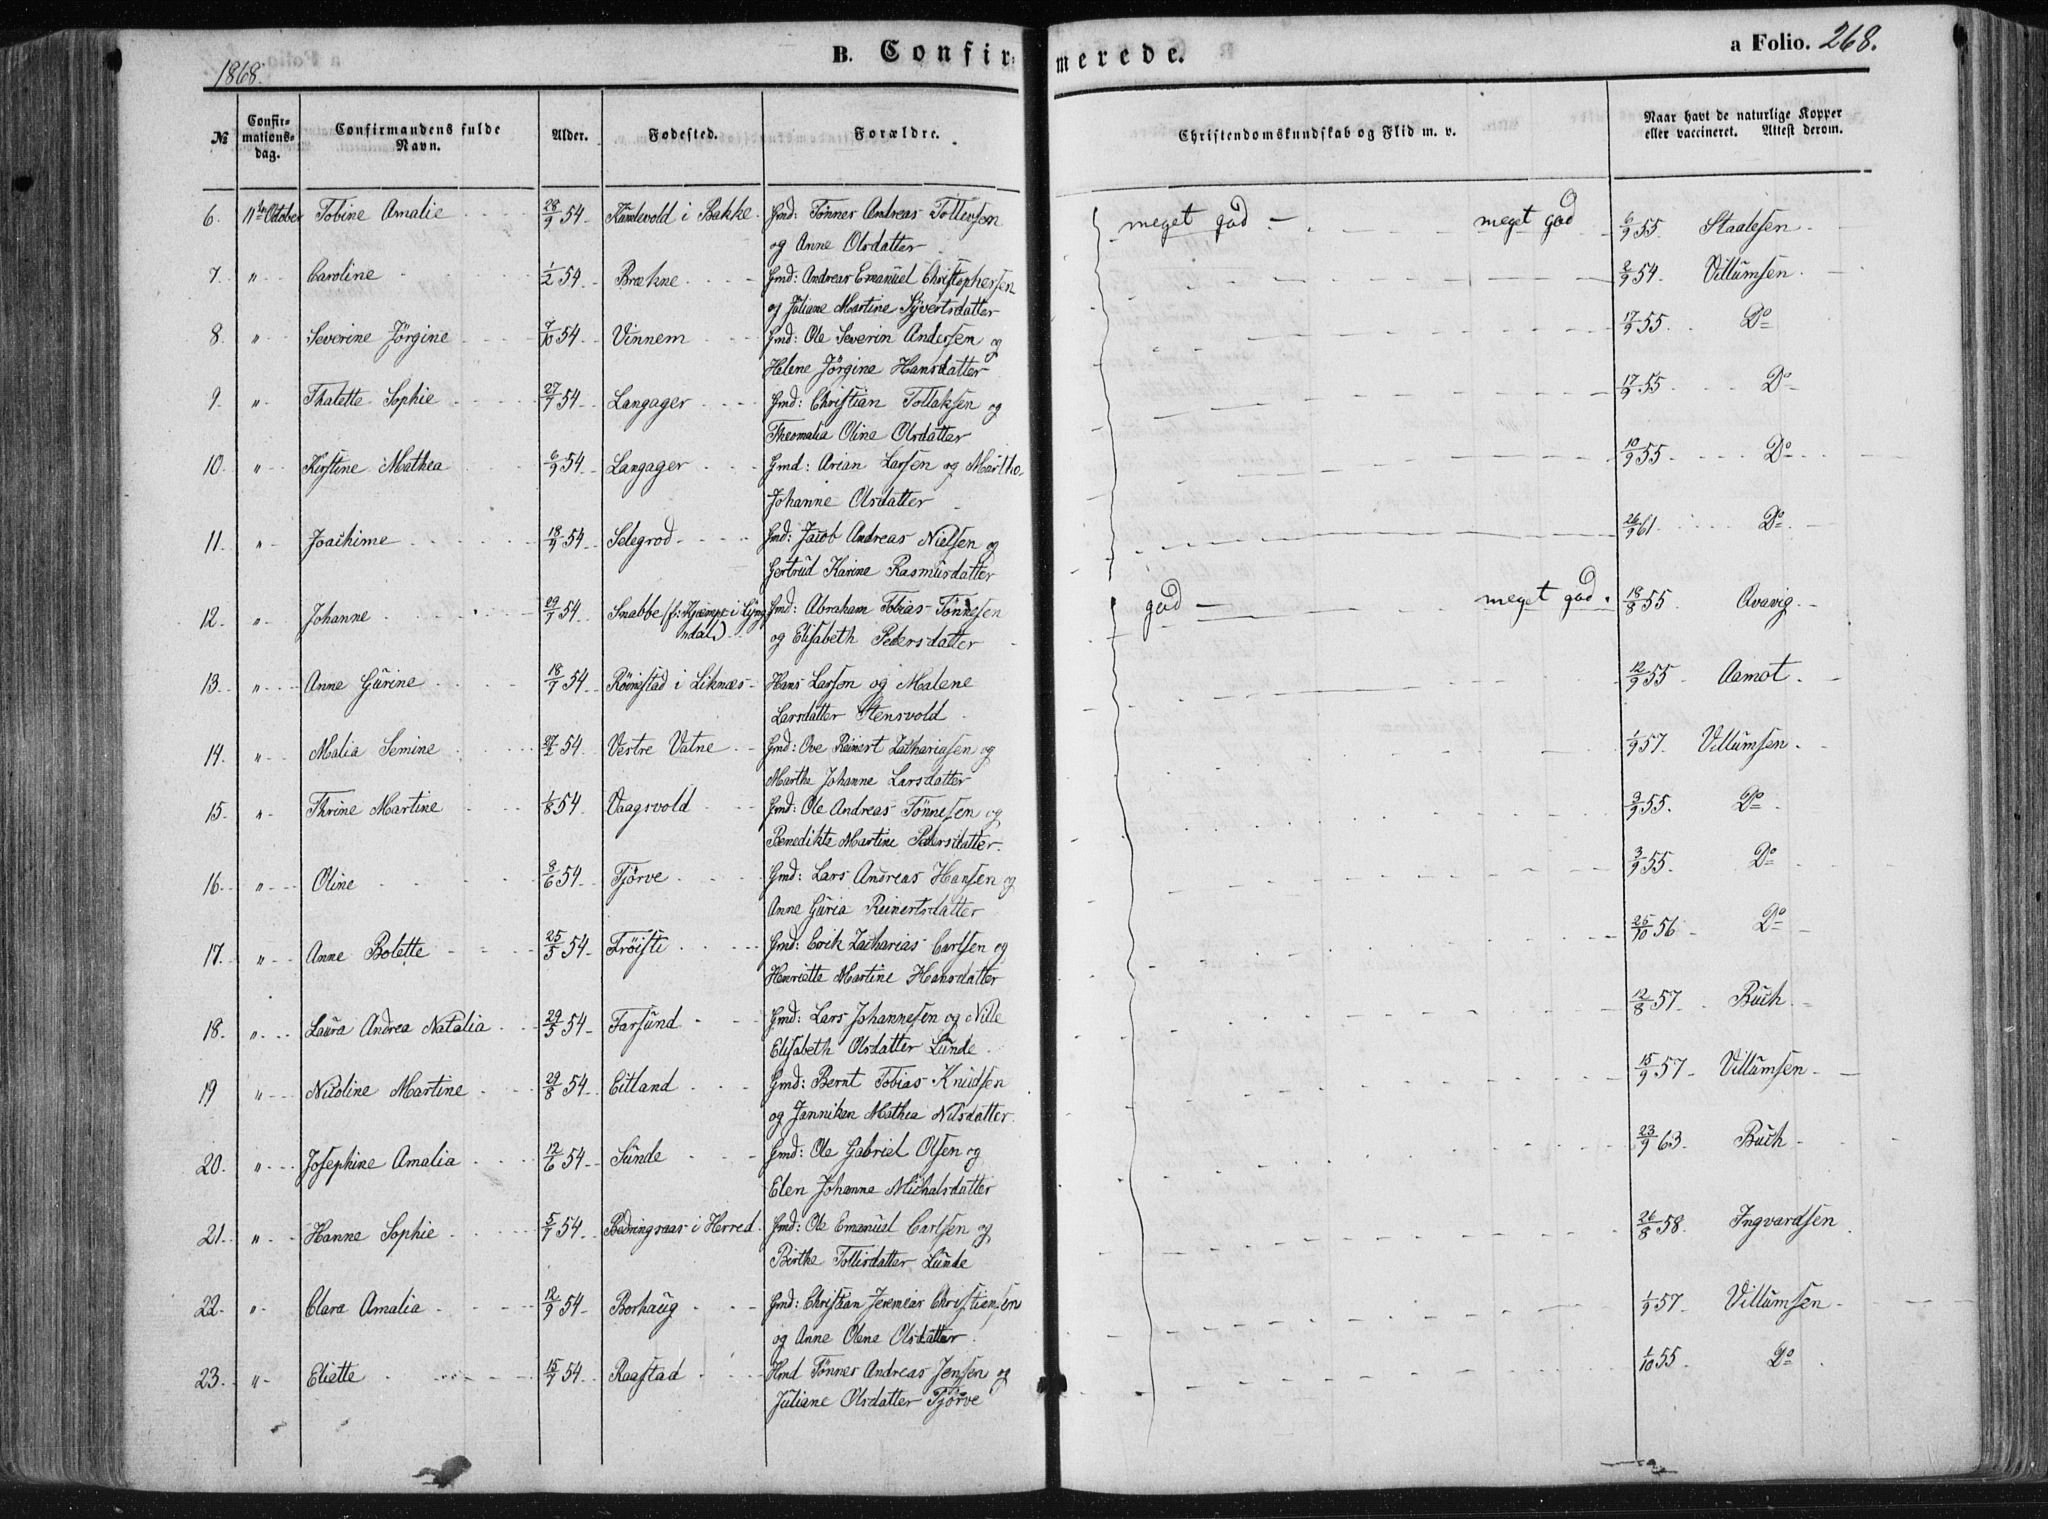 1868.
B. Confirmerede.
a Folio. 268.
№ Confirmationsdag. Confirmandens fulde Navn. Alder. Fødested. Forældre. Christendomskundskab og Flid m. v. Naar havt de naturlige Kopper eller vaccineret. Attest derom.
6. 11te October Tobine Amalie 28/9 54. i Bakke. Gmd: Tönnes Andreas Tollevsen meget god meget god 6/9 55. Staalesen
og Anne Olsdatter
7. " Caroline 1/2 54. Brækne Gmd: Andreas Emanuel Christophersen 2/9 54. Villumsen
og Juliane Martine Syvertsdatter
8. " Severine Jörgine 7/10 54. Vinnem Gmd: Ole Severin Andersen og 17/9 55. Do
Helene Jörgine Hansdatter
9. " Thalette Sophie 27/7 54. Langager Gmd: Christian Tollaksen og 17/9 55. Do
Theomalia Oline Olsdatter
10. " Kirstine Mathea 6/9 54. Langager Gmd: Arian Larsen og Martha 10/9 55 Do
Johanne Olsdatter
11. " Joachime 18/9 54 Selegrod Gmd: Jacob Andreas Nielsen og 26/9 61 Do
Gertrud Karine Rasmusdatter
12. " Johanne 29/7 54. Snabbe (f: Kjæmpe i Lyng Gmd: Abraham Tobias Tönnesen god meget god. 18/8 55. Qvavig
ndal) og Elisabeth Pedersdatter
13. " Anne Gurine 18/7 54. Röinestad i Liknæs Hans Larsen og Malene 12/9 55. Aamot
Larsdatter Stensvold
14. " Malia Semine 27/2 54 Vestre Vatne Gmd: Ove Reinert Zachariasen og 1/9 57. Villumsen
Marthe Johanne Larsdatter
15. " Thrine Martine 1/8 54 Vaagsvold Gmd: Ole Andreas Tönnesen og 3/9 55. Do
Benedikte Martine Pedersdatter.
16. " Oline 8/6 54. Tjörve Gmd: Lars Andreas Hansen og 3/9 55. Do
Anne Guria Reinertsdatter
17. " Anne Bolette 25/5 54. Fröiste Gmd: Erik Zacharias Carlsen og 25/10 56 Do
Henriette Martine Hansdatter
18. " Laura Andrea Natalia 29/5 54 Farsund Gmd: Lars Johannesen og Nille 12/8 57. Buch
Elisabeth Olsdatter Lunde
19 " Nicoline Martine 29/8 54. Eitland Gmd: Bernt Tobias Knudsen 15/9 57 Villumsen
og Janniken Mathea Nilsdatter.
20. " Josephine Amalia 12/6 54. Sunde Gmd: Ole Gabriel Olsen og 23/9 63. Buch
Elen Johanne Michalsdatter
21. " Hanne Sophie 5/7 54. i Herred Gmd: Ole Emanuel Carlsen og 26/8 58. Ingvardsen
Birthe Tollisdatter Lunde
22. " Clara Amalia 12/9 54. Borhaug Gmd: Christian Jeremias Christiansen 1/9 57. Villumsen
og Anne Olene Olsdatter
23. " Eliette 15/7 54. Raastad Hmd Tönnes Andreas Jensen og 1/10 55. Do
Juliane Olsdatter Tjörve